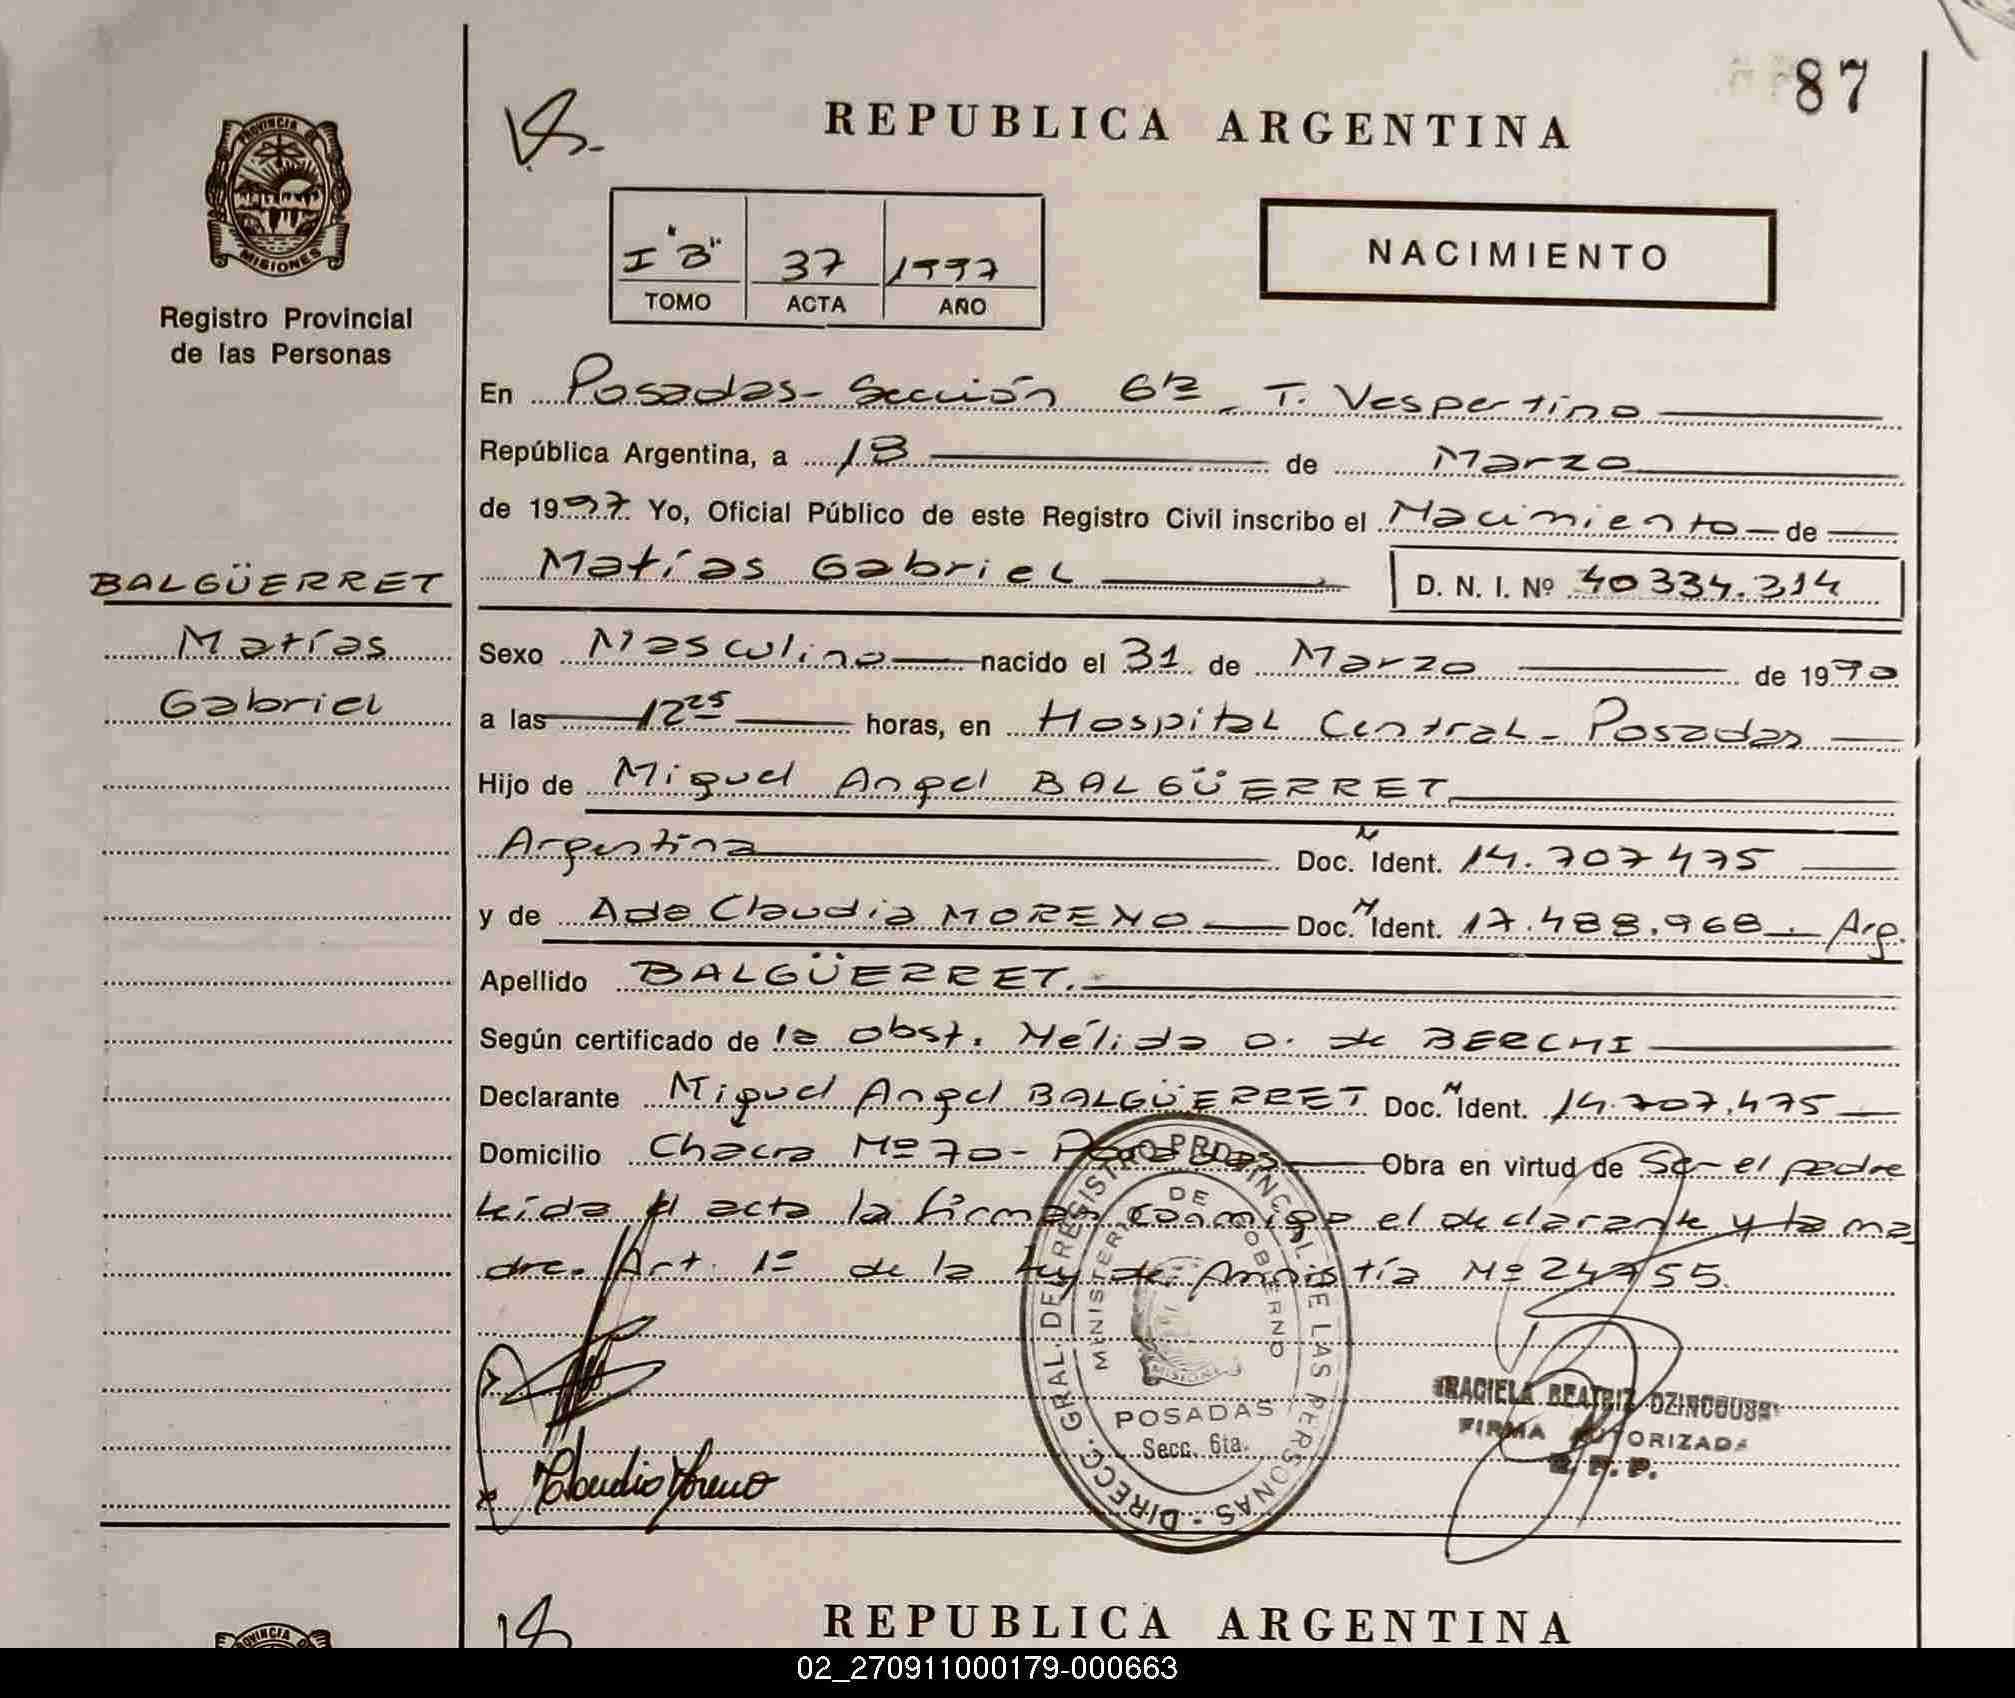 87
REPUBLICA ARGENTINA
PROVINCIA DE
MISIONES
Registro Provincial
de las Personas
I "B" 37 1997
TOMO ACTA AÑO
NACIMIENTO
En Posadas - Sección 6ta - T. Vespertino
República Argentina, a 18 de Marzo
de 1997 Yo, Oficial Público de este Registro Civil inscribo el Nacimiento de
Matías Gabriel D. N. I. Nº 40334.314
BALGÜERRET
Matías
Gabriel
Sexo Masculino nacido el 31 de Marzo de 1990
a las 12 25 horas, en Hospital Central - Posadas
Hijo de Miguel Angel BALGÜERRET
Argentina Doc. N Ident. 14.707475
y de Ada Claudia MORENO Doc. N Ident. 17.488.968. Arg.
Apellido BALGÜERRET.
Según certificado de la Obst. Nélida O. de BERCHI
Declarante Miguel Angel BALGÜERRET Doc. N Ident. 14.707.475
Domicilio Chacra Nº 70 - Posadas Obra en virtud de Ser el padre
Leída el acta la firman conmigo el declarante y la ma
dre. Art. 1º de la Ley de Amnistía Nº 24755.
DIRECC. GRAL. DEL REGISTRO PROVINCIAL DE LAS PERSONAS
MINISTERIO DE GOBIERNO
MISIONES
POSADAS
Secc. 6ta.
GRACIELA BEATRIZ
FIRMA AUTORIZADA
R. P. P.
Claudia Moreno
REPUBLICA ARGENTINA
PROVINCIA DE
02_270911000179-000663